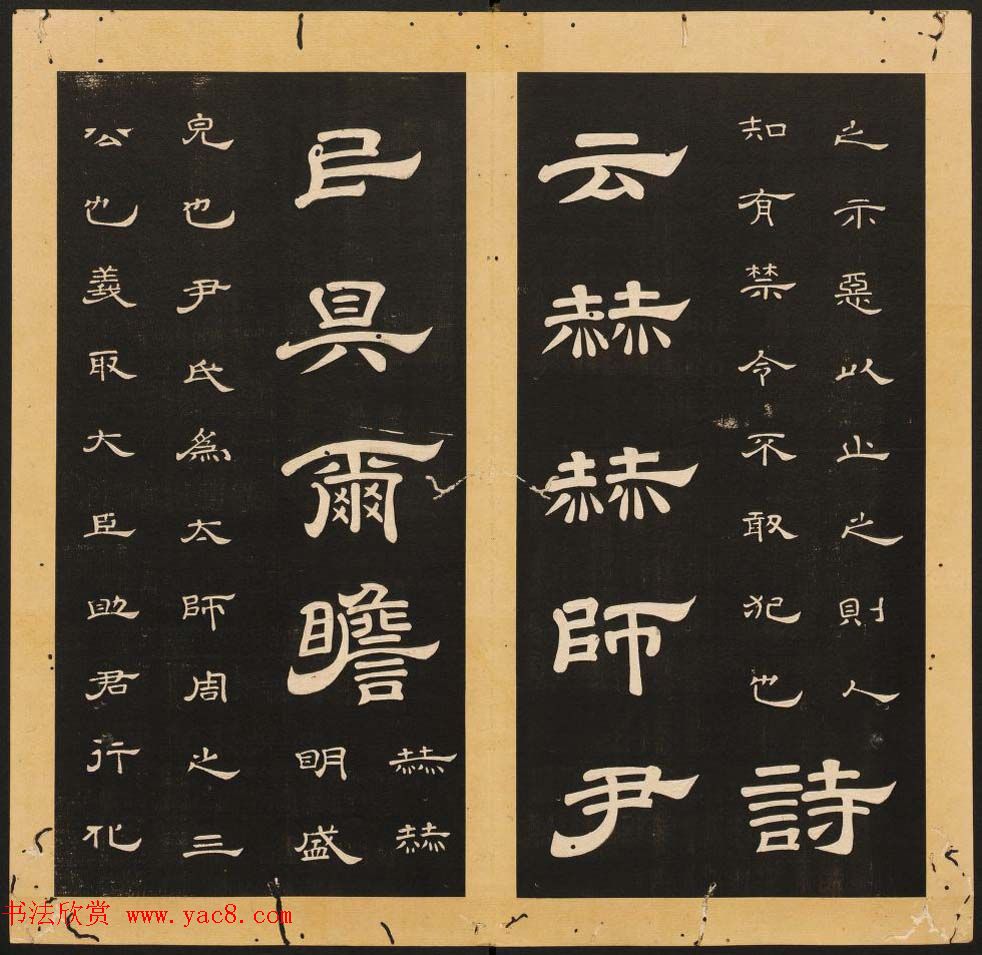 之示惡以止之則人
知有禁令不敢犯也詩
云赫赫師尹
民具爾瞻
赫赫
明盛
皃也尹氏爲太師周之三
公也義取大臣助君行化
书法欣赏 www.yac8.com